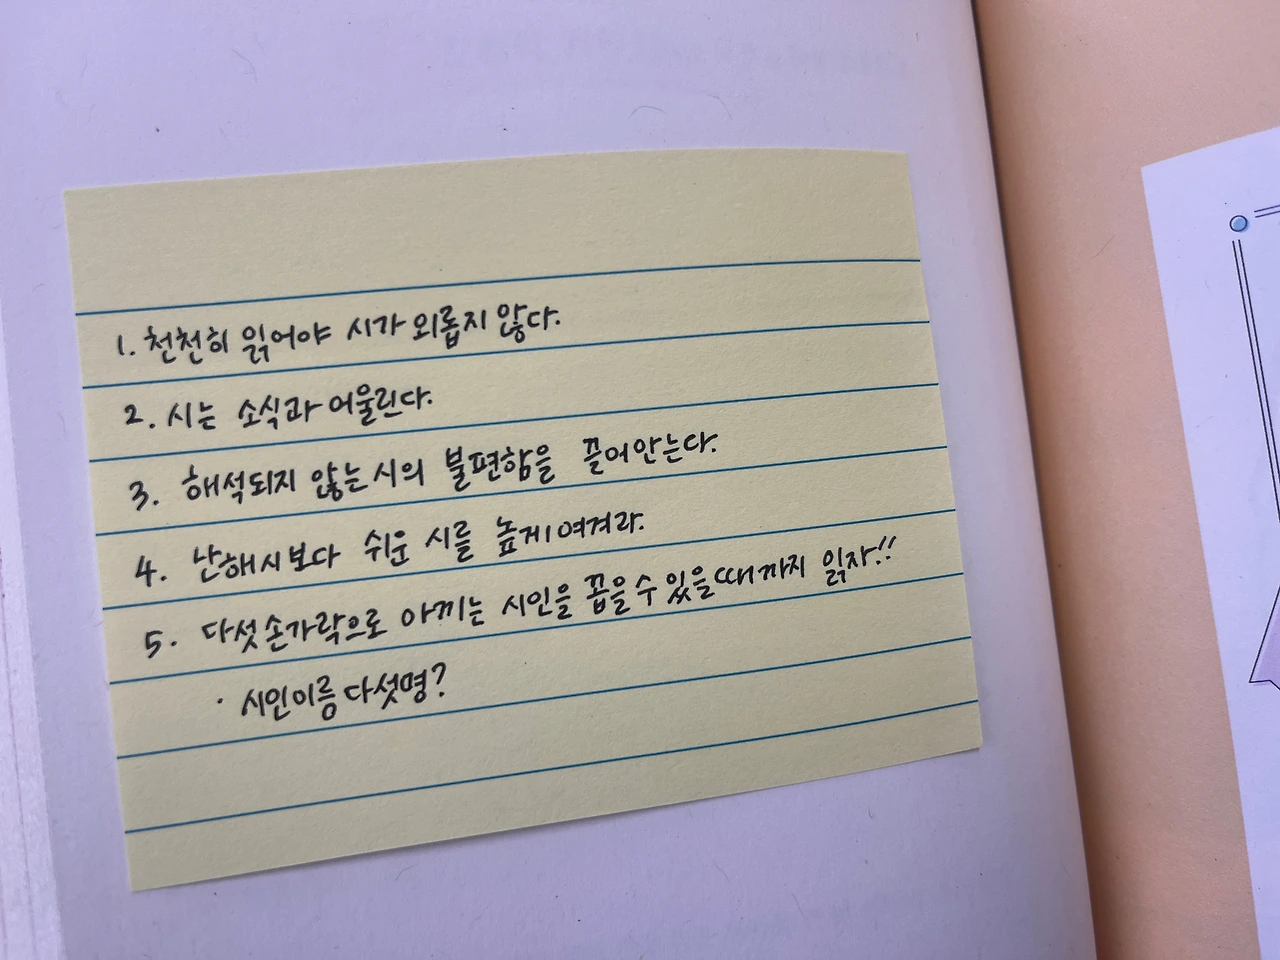 1. 천천히 읽어야 시가 외롭지 않다.
2. 시는 소식과 어울린다.
3. 해석되지 않는 시의 불편함을 끌어안는다.
4. 난해시보다 쉬운 시를 높게 여겨라.
5. 다섯 손가락으로 아끼는 시인을 꼽을 수 있을 때까지 읽자!!
· 시인이름 다섯명?